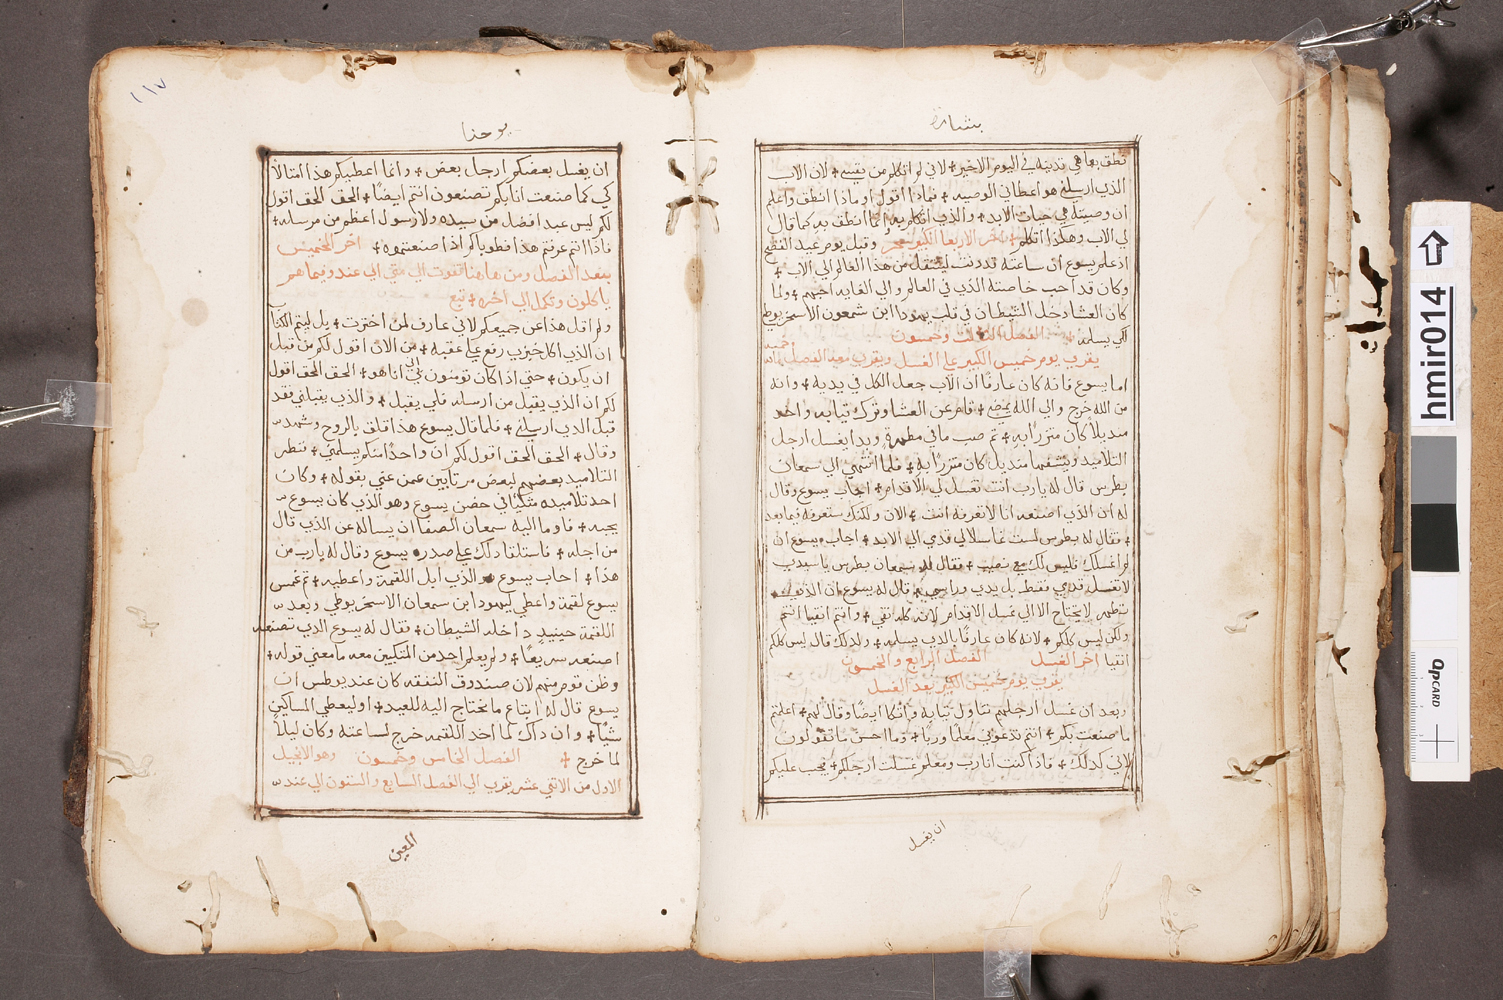 بشارة
نطق بها هي تدينه في اليوم الاخير + لاني لم اتكلم من نفسي + لان الاب
الذي ارسلني هو اعطاني الوصيه + فماذا اقول او ماذا انطق واعلم
ان وصيته هي حياة الابد + والذي اتكلم به انما انطق به كما قال
لي الاب وهكذا اتكلم + اخر الاربعا الكبير وقبل يوم عيد الفصح
اذ علم يسوع ان ساعته قد دنت لينتقل من هذا العالم الي الاب +
وكان قد احب خاصته الذي في العالم والي الغايه احبهم + ولما
كان العشا دخل الشيطان في قلب يهودا ابن شمعون الاسخريوطي
لكي يسلمه + الفصل الثالث وخمسون
يقرب يوم خميس الكبير على الغسل ويقرب بعد الفصل
اما يسوع فانه كان عارفا ان الاب جعل الكل في يديه + وانه
من الله خرج والي الله يمضي + قام عن العشا وترك ثيابه واخد
منديلا كان متزرا به + ثم صب ما في مطهرة وبدا يغسل ارجل
التلاميد وينشفها بمنديل كان متزرا به + فلما انتهي الي سمعان
بطرس قال له يارب انت تغسل لي الاقدام + اجاب يسوع وقال
له ان الذي اصنعه انا لا تعرفه انت + الان ولكنك ستعرفه فيما بعد
+ فقال له بطرس لست غاسلا لي قدمي الي الابد + اجاب يسوع ان
لم اغسلك فليس لك معي نصيب + فقال له سمعان بطرس ياسيدي
لا تغسل قدمي فقط بل يدي وراسي + قال له يسوع ان الذي
تطهر لا يحتاج الا الي غسل الاقدام لانه كله نقي + وانتم انقيا انتم
ولكن ليس كلكم + لانه كان عارفا بالذي يسلمه + ولدلك قال ليس كلكم
انقيا اخر الغسل الفصل الرابع والخمسون
يقرب يوم خميس الكبير بعد الغسل
وبعد ان غسل ارجلهم تناول ثيابه واتكا ايضا وقال لهم + اعلمتم
ما صنعت بكم + انتم تدعوني معلما وربا + وما احسن ما تقولون
لاني كدلك + فاذا كنت انا رب ومعلم غسلت ارجلكم + يجب عليكم
ان يغسل
١١٧
يوحنا
ان يغسل بعضكم ارجل بعض + وانما اعطيتكم هذا امتالا
كي كما صنعت انا بكم تصنعون انتم ايضا + الحق الحق اقول
لكم ليس عبد افضل من سيده ولا رسول اعظم من مرسله +
فاذا انتم عرفتم هذا فطوباكم اذا صنعتموه + اخر الخميس
بعد الفصل ومن هاهنا تفوت الي متي الي عند وفيما هم
ياكلون وتكمل الي اخره + تبع
ولم اقل هذا عن جميعكم لاني عارف لمن اخترت + بل ليتم الكتاب
ان الذي اكل خبزي رفع علي عقبه + من الان اقول لكم من قبل
ان يكون + حتي اذا كان تومنون بي اني انا هو + الحق الحق اقول
لكم ان الذي يقبل من ارسله فلي يقبل + والذي يقبلني فقد
قبل الذي ارسلني + فلما قال يسوع هذا قلق بالروح وشهد
وقال + الحق الحق اقول لكم ان واحدا منكم يسلمني + فنظر
التلاميد بعضهم لبعض مرتابين عمن عني بقوله + وكان
احد تلاميده متكيا في حضن يسوع وهو الذي كان يسوع
يحبه + فاوما اليه سمعان الصفا ان يساله عن الذي قال
من اجله + فاستلقا دلك علي صدره يسوع وقال له يارب من
هذا + اجاب يسوع هو الذي ابل اللقمة واعطيه + ثم غمس
يسوع لقمة واعطي ليهودا ابن سمعان الاسخريوطي وبعد
اللقمة حينيد داخله الشيطان + فقال له يسوع الذي تصنعه
اصنعه سريعا + ولم يعلم احد من المتكيين معه ما معني قوله +
وظن قوم منهم لان صندوق النفقه كان عند يودس ان
يسوع قال له ابتاع ما نحتاج اليه للعيد + او ليعطي المساكين
شيا + وان داك لما اخد اللقمه خرج لساعته وكان ليلا
لما خرج + الفصل الخامس وخمسون وهو الانجيل
الاول من الاتني عشر يقري الي الفصل السابع والستون الي عند
المعين
hmir014
QPCARD